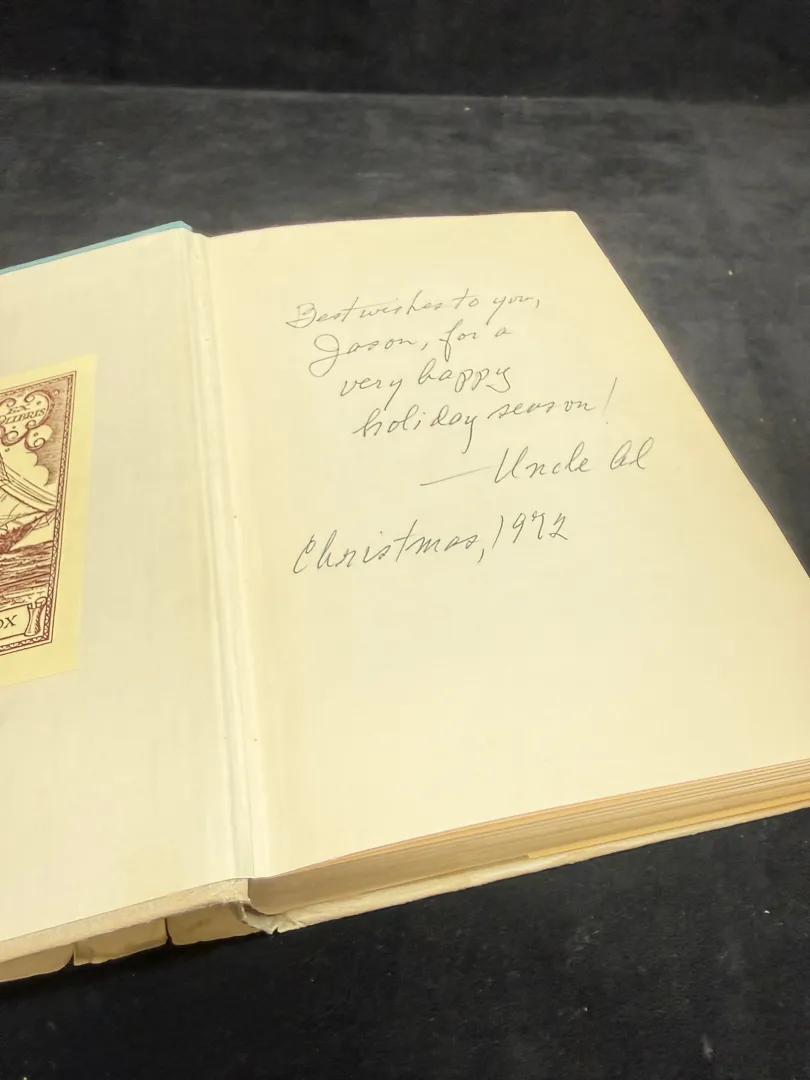 EX
LIBRIS
OX
Best wishes to you,
Jason, for a
very happy
holiday season!
— Uncle Al
Christmas, 1972